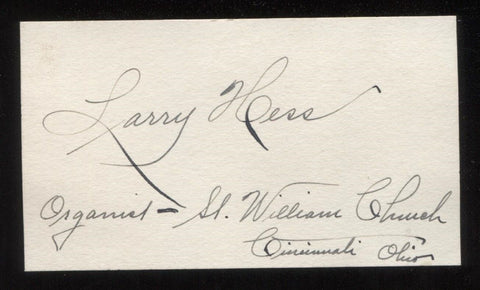 Larry Hess
Organist - St. William Church
Cincinnati Ohio